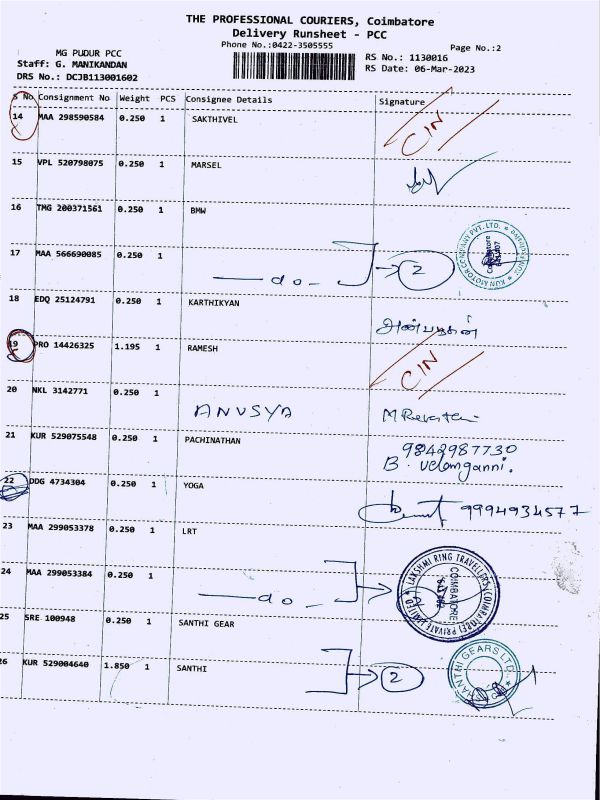 THE PROFESSIONAL COURIERS, Coimbatore
Delivery Runsheet - PCC
Phone No.:0422-3505555
Page No.:2
MG PUDUR PCC
Staff: G. MANIKANDAN
DRS No.: DCJB113001602
RS No.: 1130016
RS Date: 06-Mar-2023
S No Consignment No Weight PCS Consignee Details Signature
14 MAA 298590584 0.250 1 SAKTHIVEL CIN
15 VPL 520798075 0.250 1 MARSEL
16 TMG 200371561 0.250 1 BMW
17 MAA 566690085 0.250 1 do 2
KUN MOTOR COMPANY PVT. LTD. Coimbatore
18 EDQ 25124791 0.250 1 KARTHIKYAN அன்பழகன்
19 PRO 14426325 1.195 1 RAMESH CIN
20 NKL 3142771 0.250 1 ANUSYA M Revathi
21 KUR 529075548 0.250 1 PACHINATHAN 9842987730
B. Velamganni.
22 DDG 4734304 0.250 1 YOGA 9994934577
23 MAA 299053378 0.250 1 LRT
24 MAA 299053384 0.250 1 do
LAKSHMI RING TRAVELLERS (COIMBATORE) PRIVATE LIMITED COIMBATORE
25 SRE 100948 0.250 1 SANTHI GEAR
26 KUR 529004640 1.850 1 SANTHI 2
SHANTHI GEARS LTD.